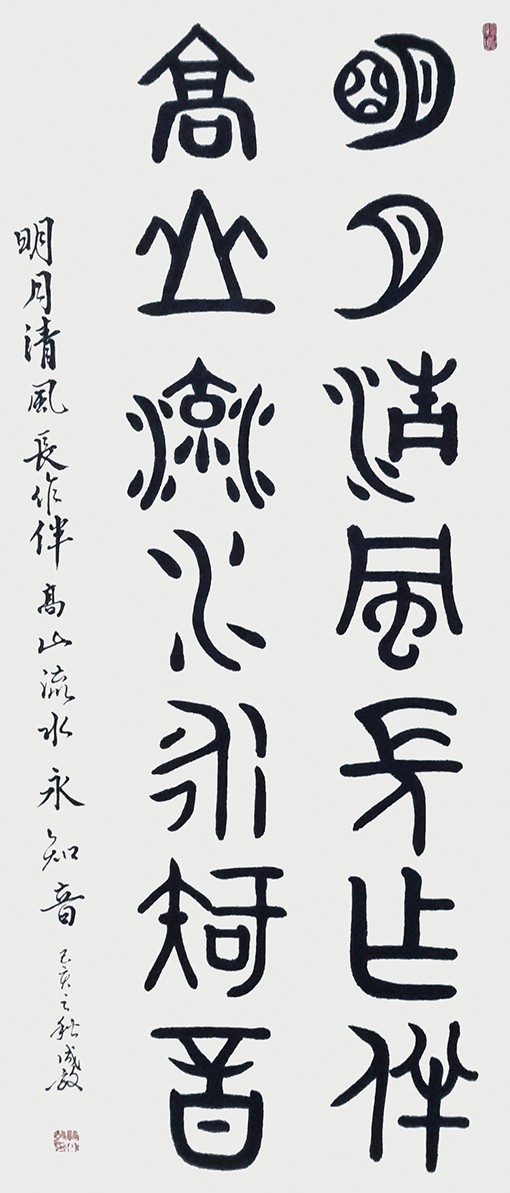 明月清風長作伴
高山流水永知音
明月清風長作伴高山流水永知音己亥之秋成教